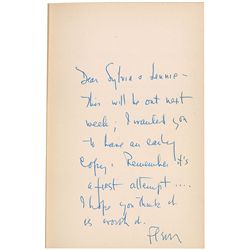 Dear Sylvia & Lennie –
This will be out next
week; I wanted you
to have an early
copy. Remember it's
a first attempt ....
I hope you think it
is worth it.